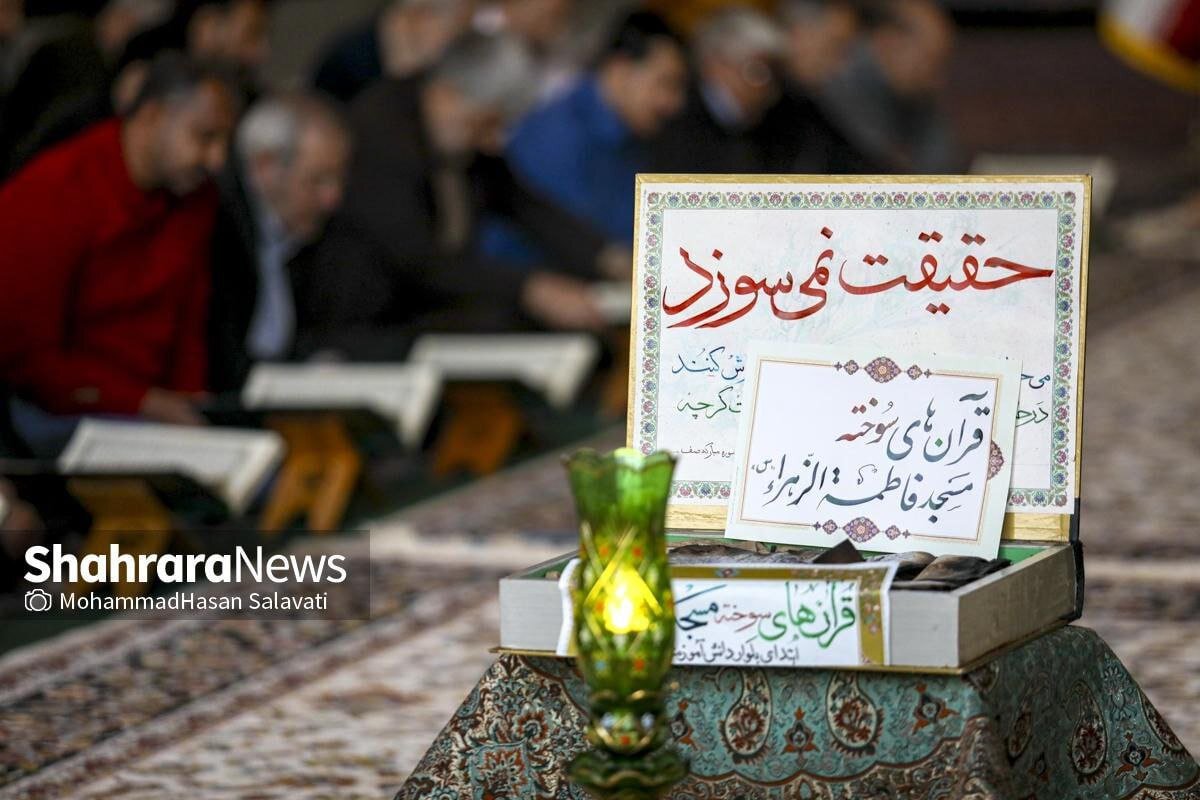 حقیقت نمی‌سوزد
می‌خ
ش کنند
ت گرچه
سوره مبارکه صف
قرآن‌های سوخته
مسجد فاطمة الزهراء (س)
قرآن‌های سوخته مسجد
ابتدای بلوار دانش‌آموز
ShahraraNews
MohammadHasan Salavati